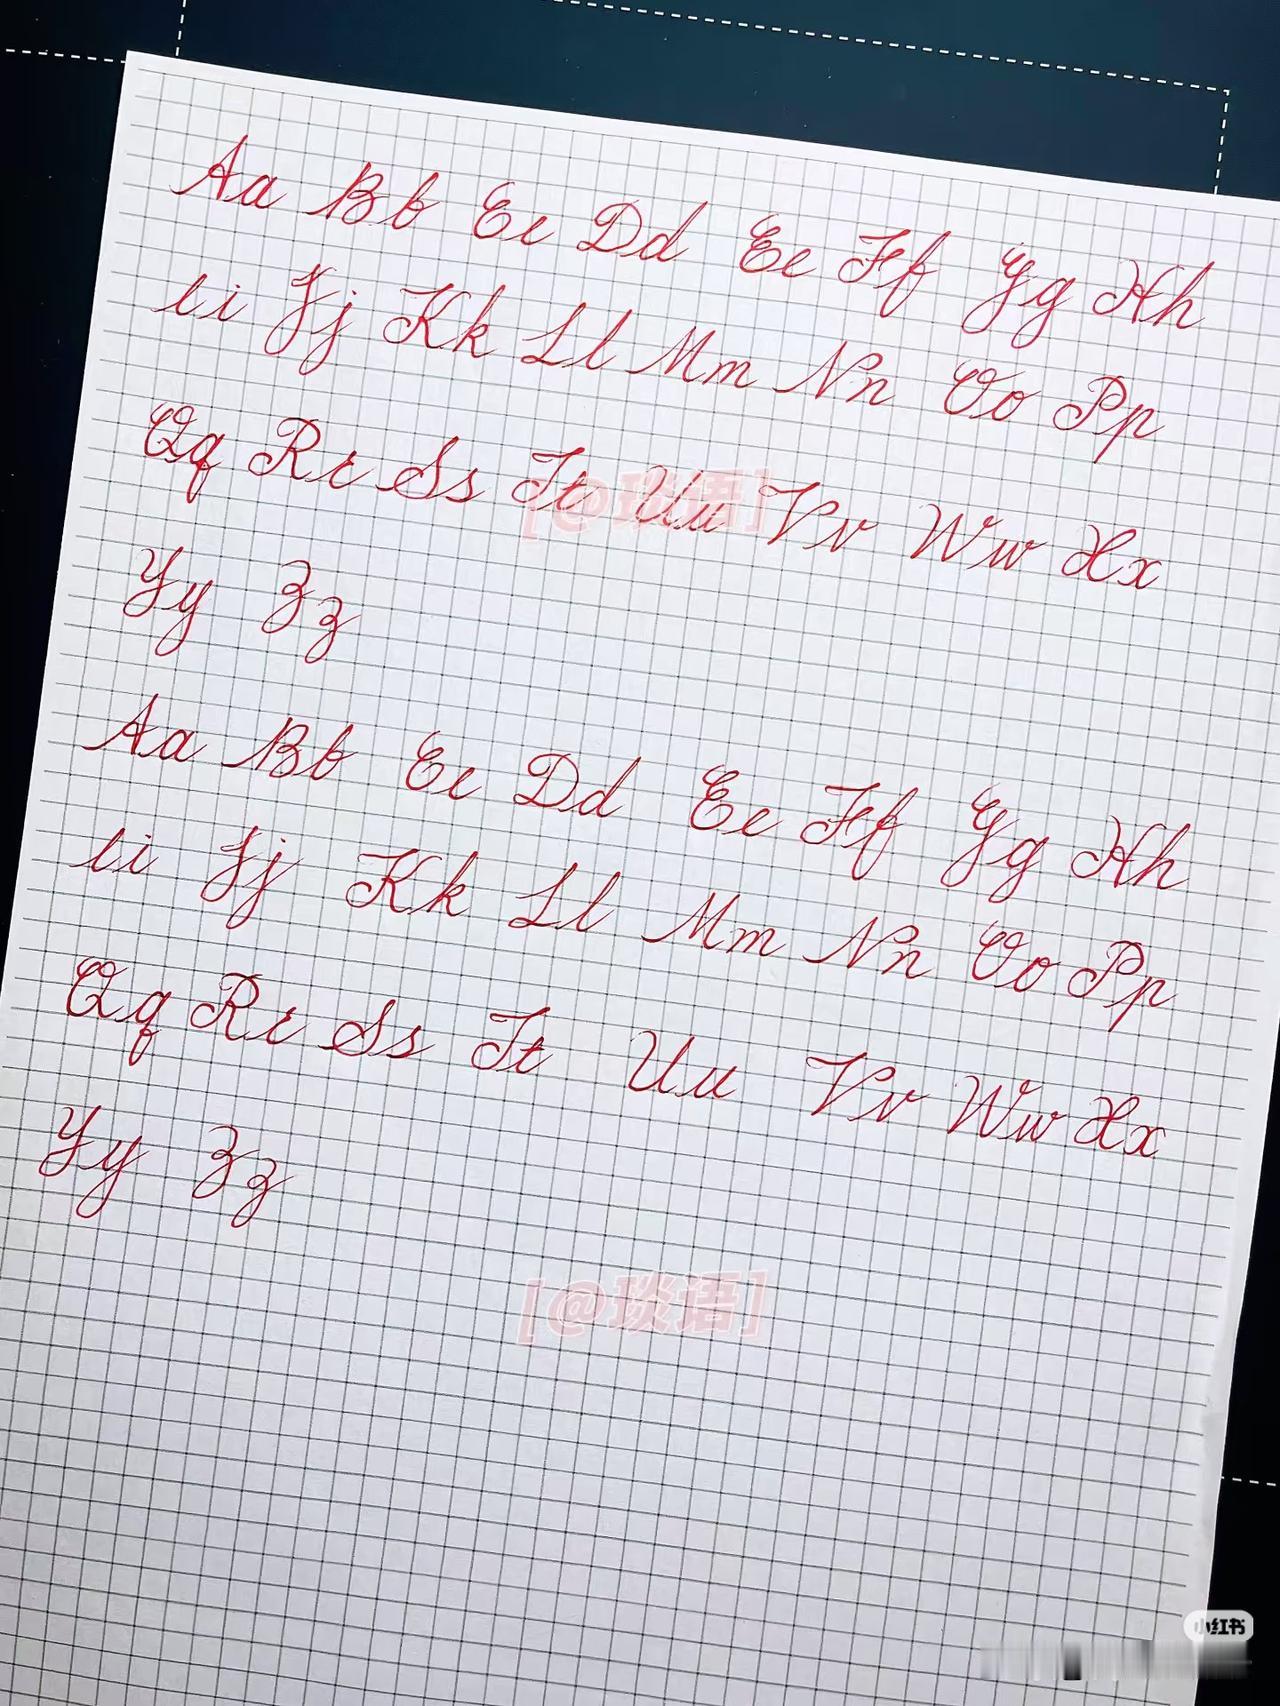 Aa Bb Ee Dd Ee Ff Gg Hh
Ii Jj Kk Ll Mm Nn Oo Pp
Qq Rr Ss Tt Uu Vv Ww Xx
[@琰语]
Yy Zz
Aa Bb Ee Dd Ee Ff Gg Hh
Ii Jj Kk Ll Mm Nn Oo Pp
Qq Rr Ss Tt Uu Vv Ww Xx
Yy Zz
[@琰语]
小红书